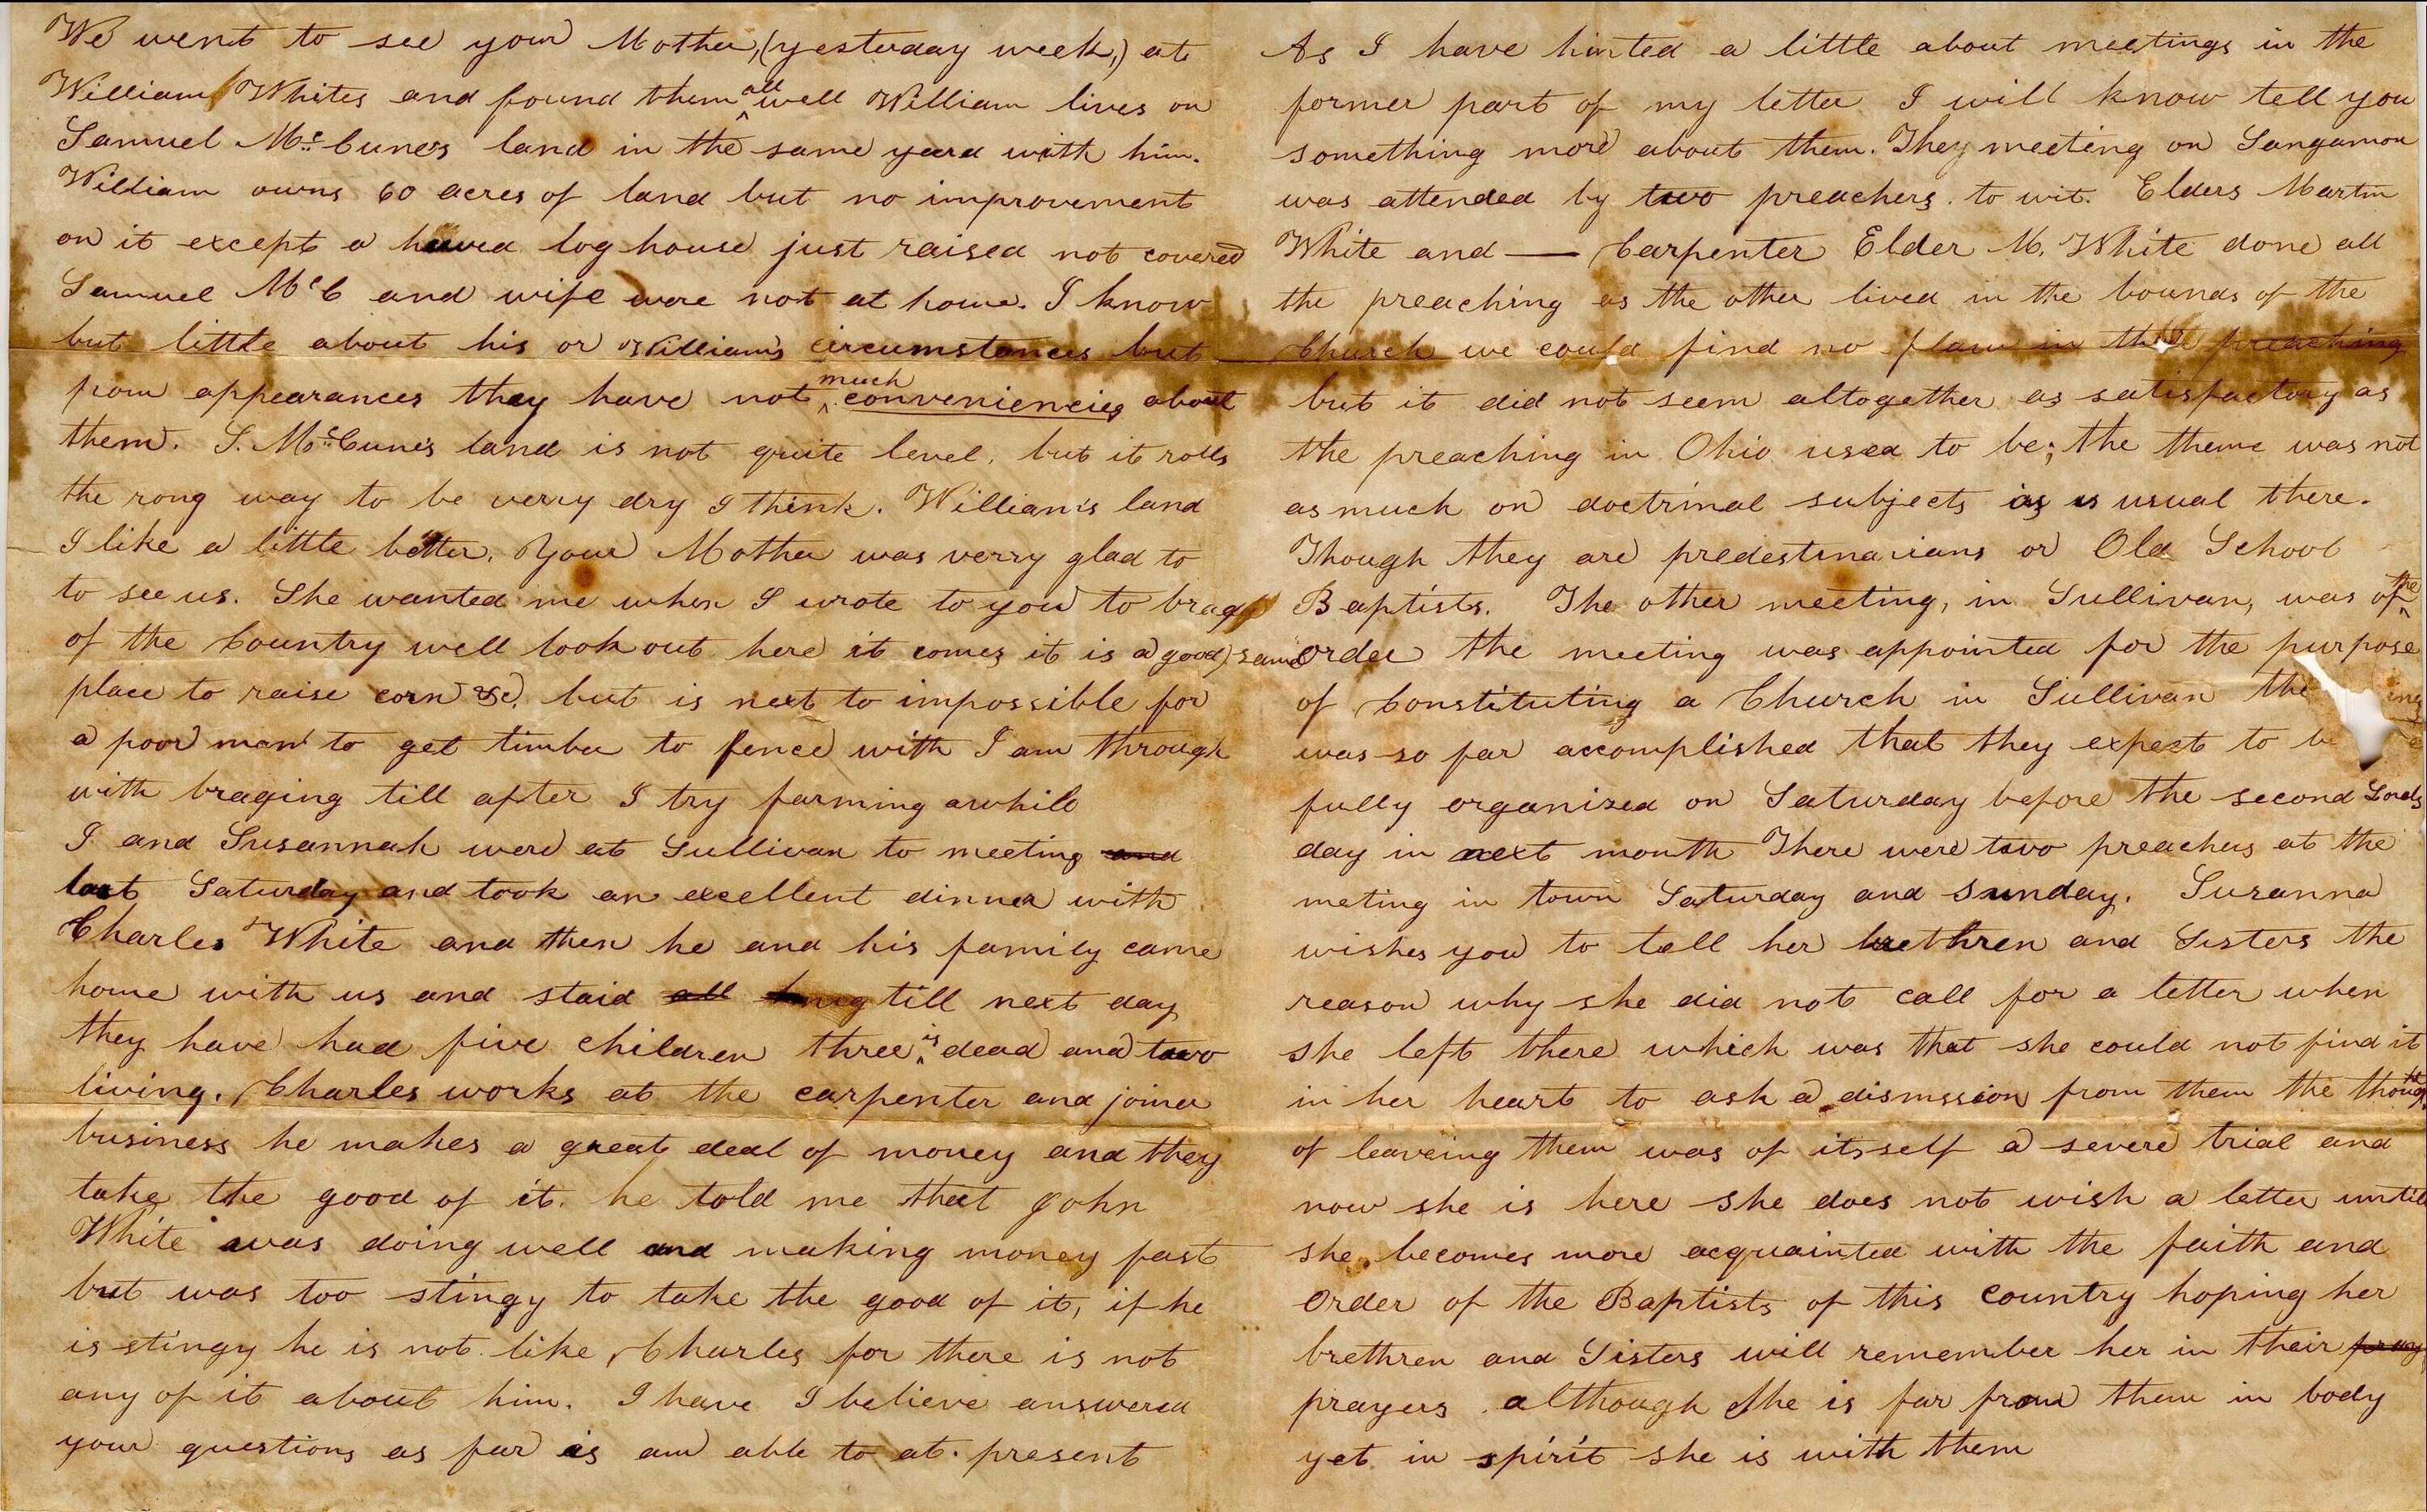 We went to see your Mother, (yesterday week,) at
William Whites and found them all well William lives on
Samuel McCune's land in the same yard with him.
William owns 60 acres of land but no improvement
on it except a hewed log house just raised not covered
Samuel McC and wife were not at home. I know
but little about his or William's circumstances but
from appearances they have not much conveniencies about
them. S. McCune's land is not quite level, but it rolls
the rong way to be verry dry I think. William's land
I like a little better. Your Mother was verry glad to
to see us. She wanted me when I wrote to you to brag
of the Country well look out here it comes it is a good
place to raise corn &c. but is next to impossible for
a poor man to get timber to fence with I am through
with braging till after I try farming awhile
I and Susannah were at Sullivan to meeting and
last Saturday and took an excellent dinner with
Charles White and then he and his family came
home with us and staid all till next day
they have had five children three is dead and two
living. Charles works at the carpenter and joiner
business he makes a great deal of money and they
take the good of it. he told me that John
White was doing well and making money fast
but was too stingy to take the good of it, if he
is stingy he is not like Charles for there is not
any of it about him. I have I believe answered
your questions as far as am able to at present
As I have hinted a little about meetings in the
former part of my letter I will know tell you
something more about them. They meeting on Sangamon
was attended by two preachers. to wit. Elders Martin
White and — Carpenter Elder M. White done all
the preaching as the other lived in the bounds of the
Church we could find no flaw in the preaching
but it did not seem altogether as satisfactory as
the preaching in Ohio used to be; the theme was not
as much on doctrinal subjects as is usual there.
Though they are predestinarians or Old School
Baptists. The other meeting, in Sullivan, was of the
same order the meeting was appointed for the purpose
of Constituting a Church in Sullivan the ing
was so far accomplished that they expect to be
fully organized on Saturday before the second Lords
day in next month There were two preachers at the
meting in town Saturday and Sunday. Susanna
wishes you to tell her brethren and Sisters the
reason why she did not call for a letter when
she left there which was that she could not find it
in her heart to ask a dismssion from them the thought
of leaveing them was of itsself a severe trial and
now she is here she does not wish a letter until
she becomes more acquainted with the faith and
order of the Baptists of this Country hoping her
brethren and Sisters will remember her in their pray
prayers although she is far from them in body
yet in spirit she is with them